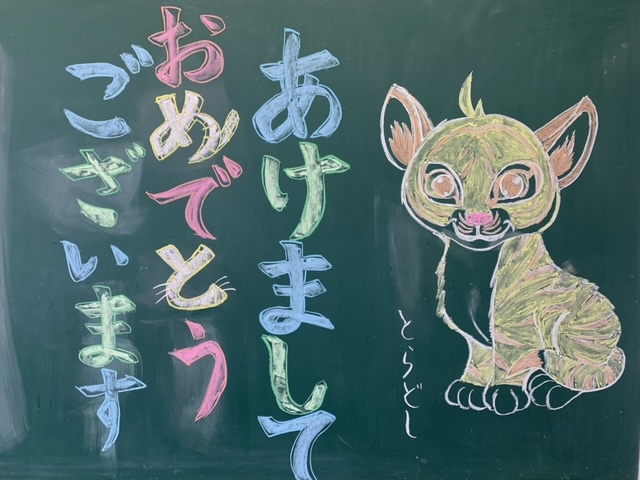 あけまして
おめでとう
ございます
とらどし